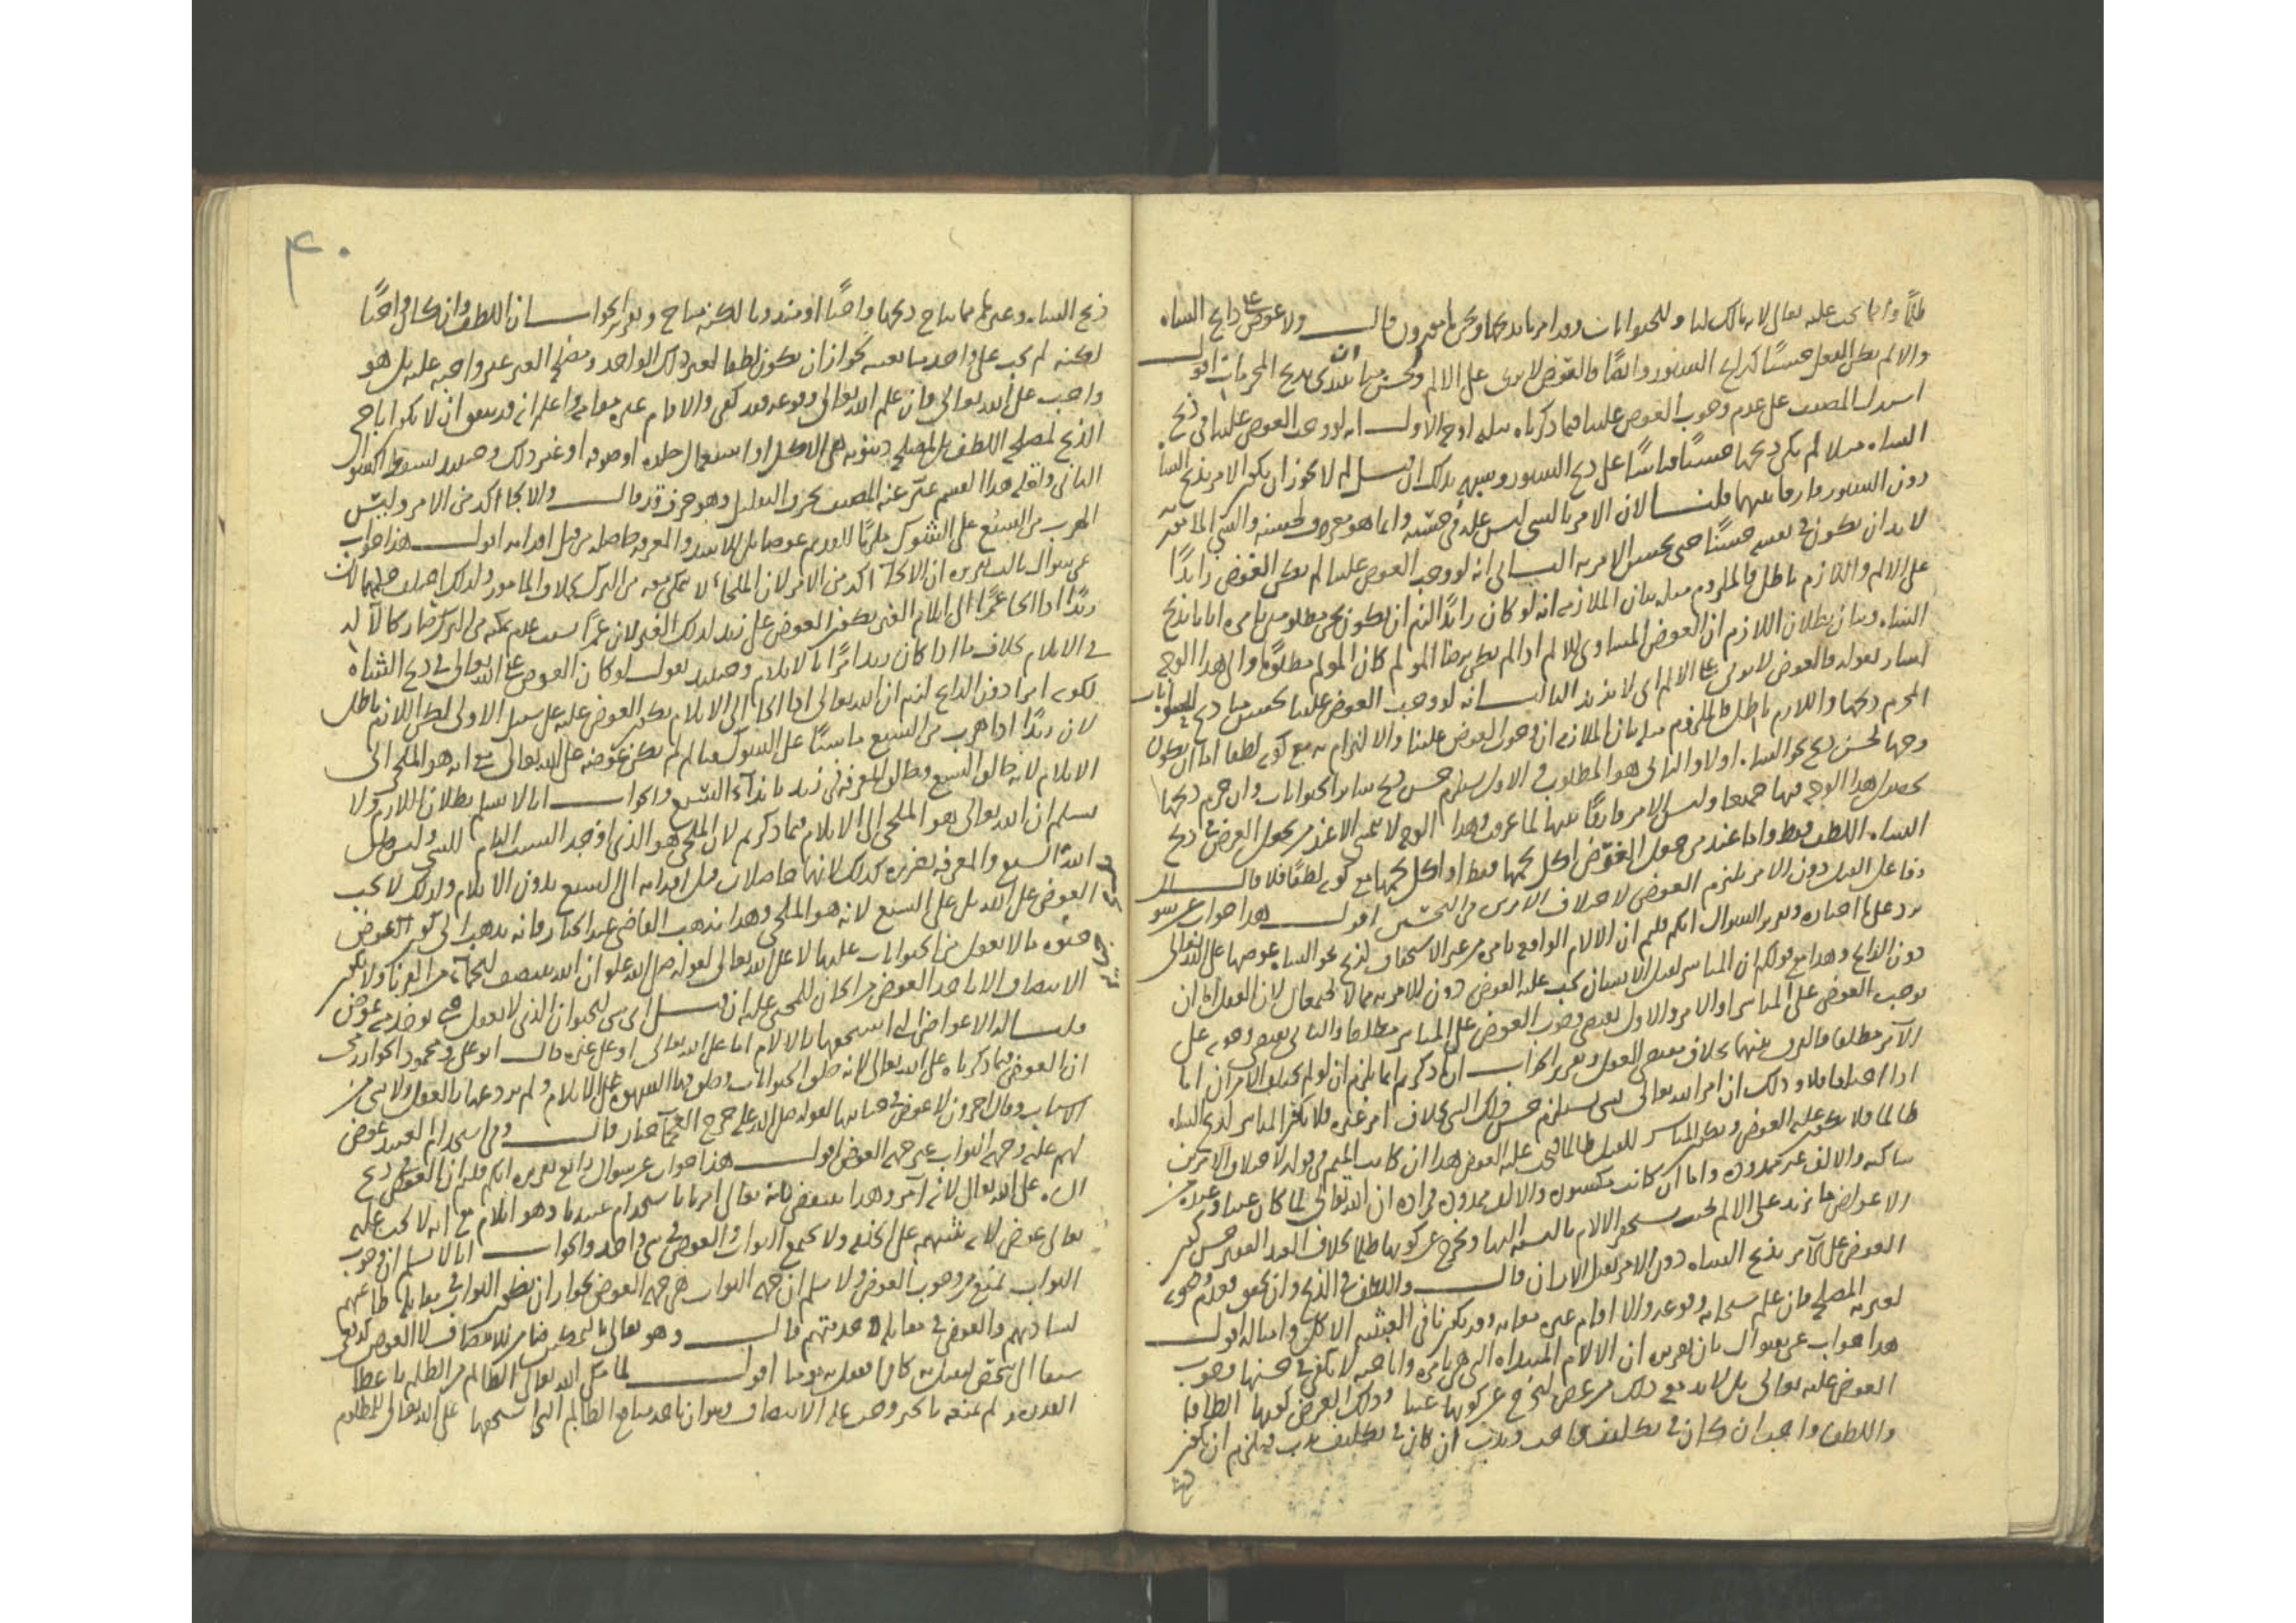 ظلمًا وانما يجب عليه تعالى لانه مالك لنا وللحيوانات وقد امرنا بذبحها ونحن مأمورون قال ولا عوض على ذابح الشاه
والا لم يكن الفعل حسنًا كذابح السنور وايضًا فالعوض لا يربى على الالم ولحسن منا ان نبتدى بذبح المحرمات اقول
استدل المصنف على عدم وجوب العوض علينا فيما ذكرناه بثلثه اوجه الاول انه لو وجب العوض علينا فى ذبح
الشاه مثلا لم يكن ذبحها حسنًا قياسًا على ذبح السنور وشبهه لا يجوز ان يكون الامر بذبح الشاه
دون السنور فارقا بينهما قلنا لان الامر بالشى ليس علة فى حسنه وانما هو معرف لحسنه والشى المأمور به
لا بد ان يكون فى نفسه حسنًا حتى يحسن الامر به الثانى انه لو وجب العوض علينا لم يكن العوض زايدًا
على الالم واللازم باطل فالملزوم مثله بيان الملازمه انه لو كان زايدًا لزم ان يكون نحن مظلومين بامره ايانا بذبح
الشاه وبيان بطلان اللازم ان العوض المساوى للالم اذا لم يكن برضا المولم كان المولم مظلومًا والى هذا الوجه
اشار بقوله فالعوض لا يربى على الالم اى لا يزيد الثالث انه لو وجب العوض علينا لحسن منا ذبح الحيوانات
المحرم ذبحها واللازم باطل فالملزوم مثله بيان الملازمه ان وجوب العوض علينا والالتزام به مع كونه لطفا اما ان يكون
وجها لحسن ذبح نحو الشاه اولا والثانى هو المطلوب والاول يستلزم حسن ذبح ساير الحيوانات وان حرم ذبحها
لحصول هذا الوجه فيها جميعا وليس الامر فارقًا بينها لما عرفت وهذا الوجه لا يتمشى الا عند من يجعل الغرض فى ذبح
الشاه اللطف فقط واما عند من جعل الغرض اكل لحمها فقط او اكل لحمها مع كونه لطفًا فلا قال
وفاعل القتل دون الامر يلزم العوض لاختلاف الامرين من البحثين اقول هذا جواب عن سوال
يرد على ما اختاره وتقرير السوال انكم قلتم ان الالام الواقع بامره من غير الاستحقاق لذبح نحو الشاه عوضها على الله تعالى
دون الذابح وهذا مع قولكم ان المباشر لقتل الانسان يجب عليه العوض دون الامر به مما لا يجتمعان لان الفعل اما ان
يوجب العوض على المباشر او الامر والاول يقتضى وجوب العوض على المباشر مطلقا والثانى يقتضى وجوبه على
الآمر مطلقا فالفرق بينهما بخلاف مقتضى العقول وتقرير الجواب ان ما ذكرتم انما يلزم ان لو لم يختلف الامران اما
اذا اختلفا فلا وذلك ان امر الله تعالى بشى يستلزم حسن ذلك الشى بخلاف امر غيره فلا يكون المباشر لذبح الشاه
ظالما فلا يكون عليه العوض ويكون المباشر للقتل ظالما فيجب عليه العوض هذا ان كانت الميم فى قوله لاختلاف الامرين
ساكنه والالف غير ممدوده واما ان كانت مكسوره والالف ممدوده فمراده ان الله تعالى لما كان غنيا وعنده من
الاعواض ما يزيد على الالم لحيث يستحقر الالام بالنسبه اليها ويخرج عن كونها ظلما بخلاف العبد الفقير حسن كون
العوض على الآمر بذبح الشاه دون الامر بقتل الانسان قال واللطف فى الذبح وان تحقق فهو وجوبه
لغيره المصلح فان علم سبحانه وقوعه والا اقام غيره مقامه وقد يكون نافى العبثيه الاكل وامثاله اقول
هذا جواب عن سوال ثان تقريره ان الالام المبتداه التى هى بامره واباحته لا يكفى فى حسنها وجوب
العوض عليه تعالى بل لا بد مع ذلك من غرض لتخرج عن كونها عبثا وذلك الغرض كونها الطافا
واللطف واجب ان كان فى تكليف واجب وندب ان كان فى تكليف ندب فيلزم ان يكون
ذبح
٤٠
ذبح الشاه وغيرها مما يباح ذبحها واجبًا او مندوبا لكنه مباح وتقرير الجواب ان اللطف وان كان واجبًا
لكنه لم يجب على واحد منا بعينه لجواز ان يكون لطفا لغير ذلك الواحد ومصلحه الغير غير واجبه عليه بل هو
واجب على الله تعالى فان علم الله تعالى وقوعه فقد كفى والا قام غيره مقامه واعلم انه قد يتفق ان لا يكون اباحه
الذبح لمصلحه اللطف بل لمصلحه دنيويه هى الاكل او استعمال جلده او صوفه او غير ذلك وحينئذ يسقط السوال
الثانى ولقله هذا القسم عبر عنه المصنف بحرف التقليل وهو حرف قد قال والالجا اكد من الامر وليس
الهرب من السبع على الشوك ملجئًا للقديم عوضا بل للاسد والمعرفه حاصله من قبل اقدامه اقول هذا جواب
عن سوال ثالث تقريره ان الالجآ اكد من الامر لان الملجاء لا تمكن معه من الترك بخلاف المامور ولذلك
زيدًا اذا الجا عمرًا الى ايلام الغير يكون العوض على زيد لذلك الغير لان عمرًا بسبب عدم تمكنه من الترك صار كالآله
فى الايلام بخلاف ما اذا كان زيد امرًا بالايلام وحينئذ نقول لو كان العوض على الله تعالى فى ذبح الشاه
لكونه امرا دون الذابح لزم ان الله تعالى اذا الجا الى الايلام يكون العوض عليه على سبيل الاولى لكن اللازم باطل
لان زيدًا اذا هرب من السبع ماشيًا على الشوك فتالم لم يكن عوضه على الله تعالى مع انه هو الملجى الى
الايلام لانه خالق السبع وخالق المعرفه فى زيد بايذاء السبع والجواب انا لا نسلم بطلان اللازم ولا
نسلم ان الله تعالى هو الملجى الى الايلام فيما ذكرتم لان الملجى هو الذى اوجد السبب التام للشى وليس خلق
الله السبع والمعرفه بضرره كذلك لانهما حاصلان قبل اقدام السبع بدون الايلام ولذلك لا يجب
العوض على الله بل على السبع لانه هو الملجى وهذا مذهب القاضى عبد الجبار فانه يذهب الى كون العوض
جنوه ما لا يعقل من الحيوانات عليها لا على الله تعالى لقوله صلى الله عليه ان الله ينتصف للجماء من القرنا ولا يكون
الانتصاف الا باخذ العوض من الجانى للمجنى عليه
قلنا له الاعواض التى استحقها بالالام اما على الله تعالى او على غيره قال ابو على ومحمود الخوارزمى
ان العوض فيما ذكرناه على الله تعالى لانه خلق الحيوانات وخلق فيها الشهوه على الايلام ولم يزدعها بالعقل ولا بشى من
الاسباب وقال اخرون لا عوض فى جنايتها لقوله صلى الله عليه جرح العجمآ جبار قال وفى استخدام العبيد عوض
لهم عليه وجهه الثواب غير جهه العوض اقول هذا جواب عن سوال رابع تقريره انكم قلتم ان العوض فى ذبح
الشاه على الله تعالى لانه آمر وهذا ينتقض فانه تعالى امرنا باستخدام عبيدنا وهو ايلام مع انه لا يجب عليه
تعالى عوض لانه يثيبهم على الخدمه ولا يجتمع الثواب والعوض فى شى واحد والجواب انا لا نسلم ان وجوب
الثواب يمنع من وجوب العوض ولا نسلم ان جهه الثواب هى جهه العوض لجواز ان يكون الثواب فى مقابله طاعتهم
لساداتهم والعوض فى مقابله خدمتهم قال وهو تعالى بالتمكين ضامن للانتصاف
اقول لما مكن الله تعالى الظالم من الظلم باعطا
القدره ولم يمنعه بالجبر وجب عليه الانتصاف وهو ان ياخذ منافع الظالم التى استحقها على الله تعالى للمظلوم